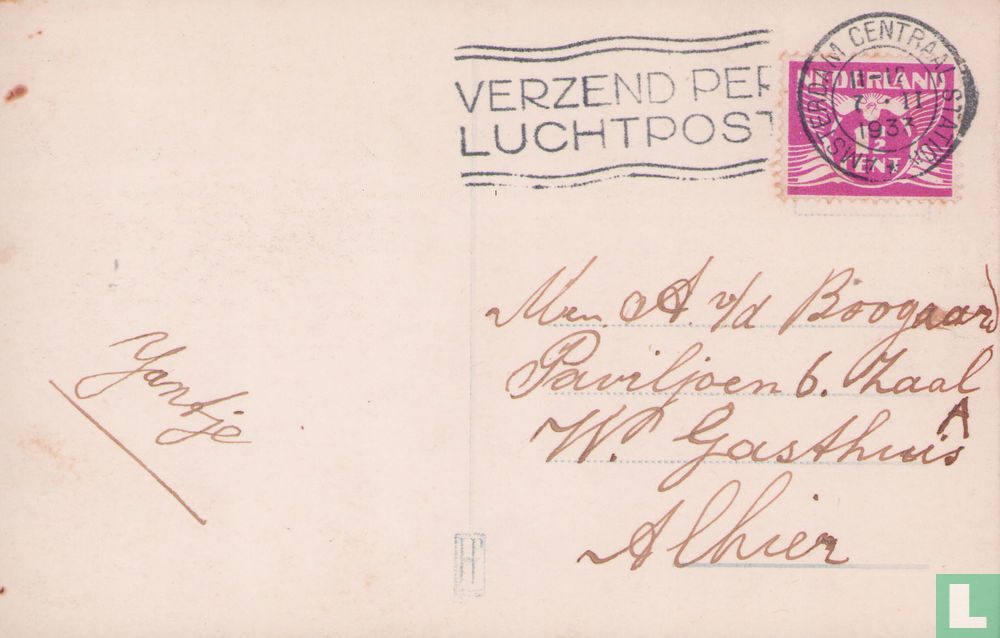 VERZEND PER
LUCHTPOST
AMSTERDAM CENTRAAL STATION
7 · II
1933
NEDERLAND
1½
CENT
Mevr. A. v/d Boogaard
Paviljoen 6. Zaal
A
W. Gasthuis
Alhier
Jantje
H
L